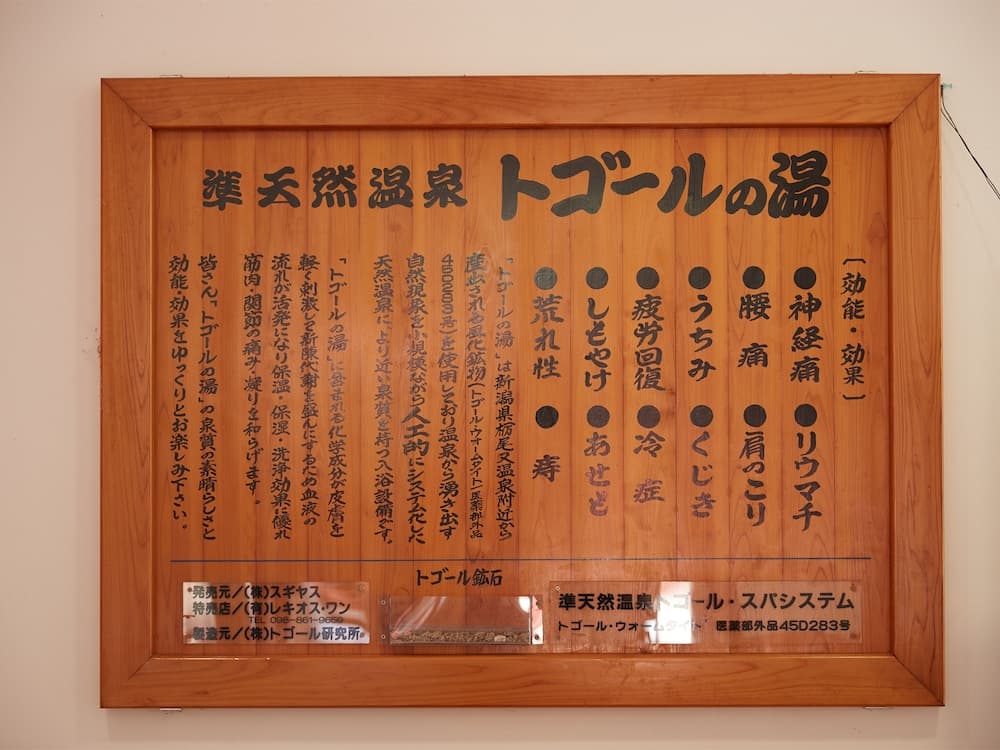 準天然温泉 トゴールの湯
〔効能・効果〕
●神経痛 ●リウマチ
●腰痛 ●肩のこり
●うちみ ●くじき
●疲労回復 ●冷症
●しもやけ ●あせも
●荒れ性 ●痔
「トゴールの湯」は新潟県栃尾又温泉附近から
産出される風化鉱物(トゴール・ウォームタイト/医薬部外品
45D283号)を使用しており温泉から湧き出す
自然現象を小規模ながら人工的にシステム化した
天然温泉により近い泉質を持つ入浴設備です。
「トゴールの湯」に含まれる化学成分が皮膚を
軽く刺激して新陳代謝を盛んにするため血液の
流れが活発になり保温・保湿・洗浄効果に優れ
筋肉・関節の痛み・凝りを和らげます。
皆さん「トゴールの湯」の泉質の素晴らしさと
効能・効果をゆっくりとお楽しみ下さい。
トゴール鉱石
発売元/(株)スギヤス
特売店/(有)レキオス・ワン
TEL 098-861-9659
製造元/(株)トゴール研究所
準天然温泉トゴール・スパシステム
トゴール・ウォームタイト 医薬部外品45D283号